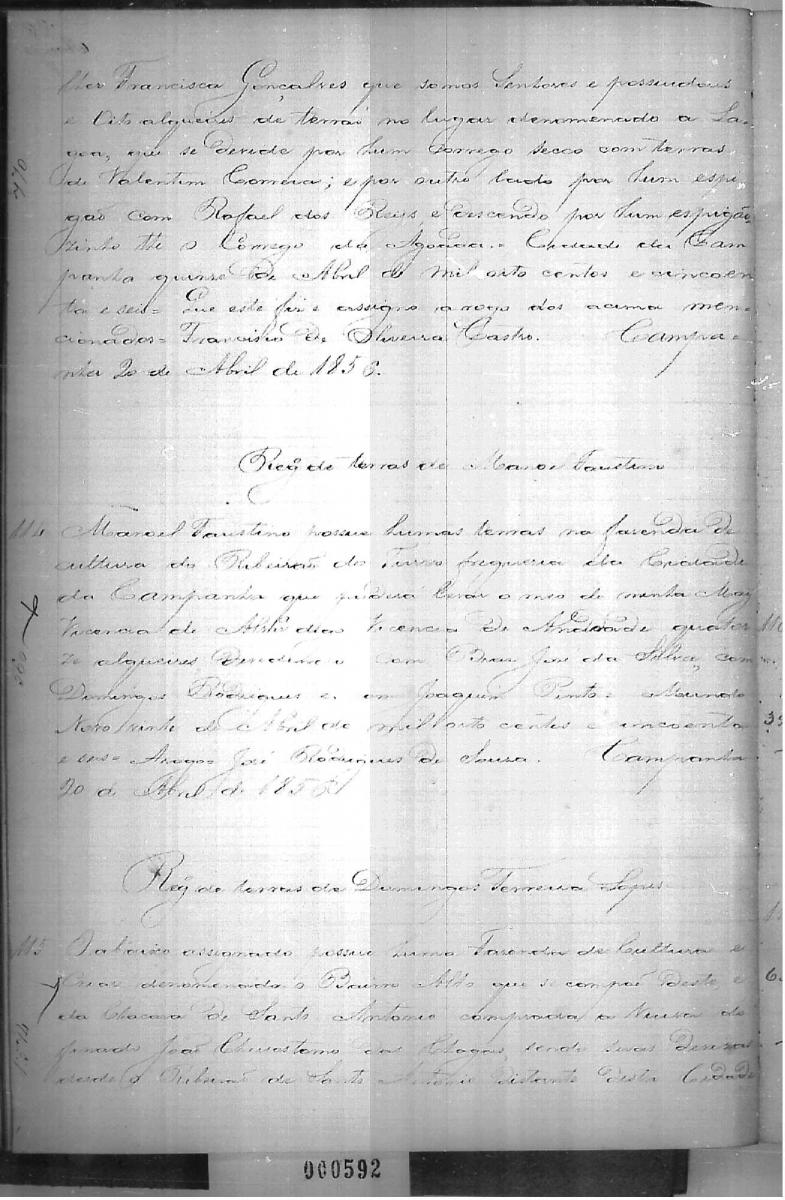 lher Francisca Gonçalves que somos Senhores e possuidores
e Oito alqueires de terras no lugar denomenado a La-
goa, que se devide por hum Corrego secco com terras
de Valentim Correia; e por outro lado por hum espi-
gão com Rafael dos Reis e descendo por hum espigão-
zinho the o Corrego da Agoada. = Cidade da Cam
panha quinze de Abril de mil oito centos e cincoen
ta e seis = Que este fiz e assigno arogo dos acima men-
cionados = Francisco de Oliveira Castro. Campa =
nha 20 de Abril de 1856.
Reg. de terras de Manoel Faustino
114 Manoel Faustino possue humas terras na fazenda de
cultura do Ribeirão do freguezia da Cidade
da Campanha que poderá levar o meo de minha May
Vicencia de Abril digo Vicencia de Andrade quator
ze alqueires devedindo com Braz José da Silva, com
Domingos Rodrigues e com Joaquim Pinto = Mundo
Novo vinte de Abril de mil oito centos e cincoenta
e seis = Arogo = José Rodrigues de Souza. Campanha
20 de Abril de 1856
Reg. de terras de Domingos Ferreira Lopes
115 O abaixo assignado possue huma Fazenda de Cultura e
Criar denomenada o Bairro Alto que se compoê deste, e
da Chacara de Santo Antonio comprada a Viuva do
finado João Chrisostomo das Chagas, sendo suas devizas
desde o Ribeirão de Santo Antonio distante desta Cidade
000592